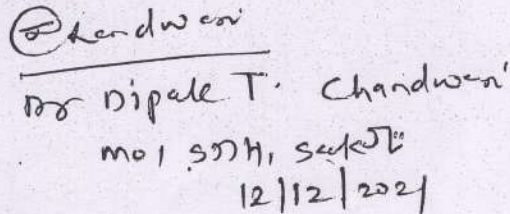 Chandwani
Dr Dipale T. Chandwani
mo, SDH, Sakoli
12/12/2021